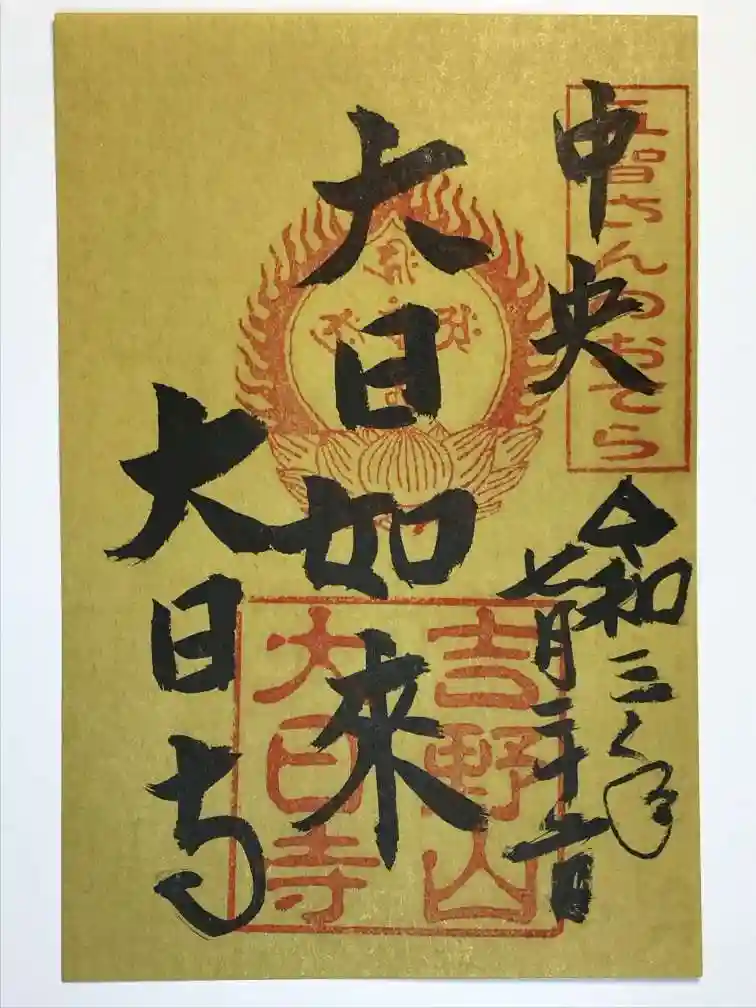 五智さんのおてら
中央
令和三年
七月二十日
大日如来
大日寺
吉野山
大日寺